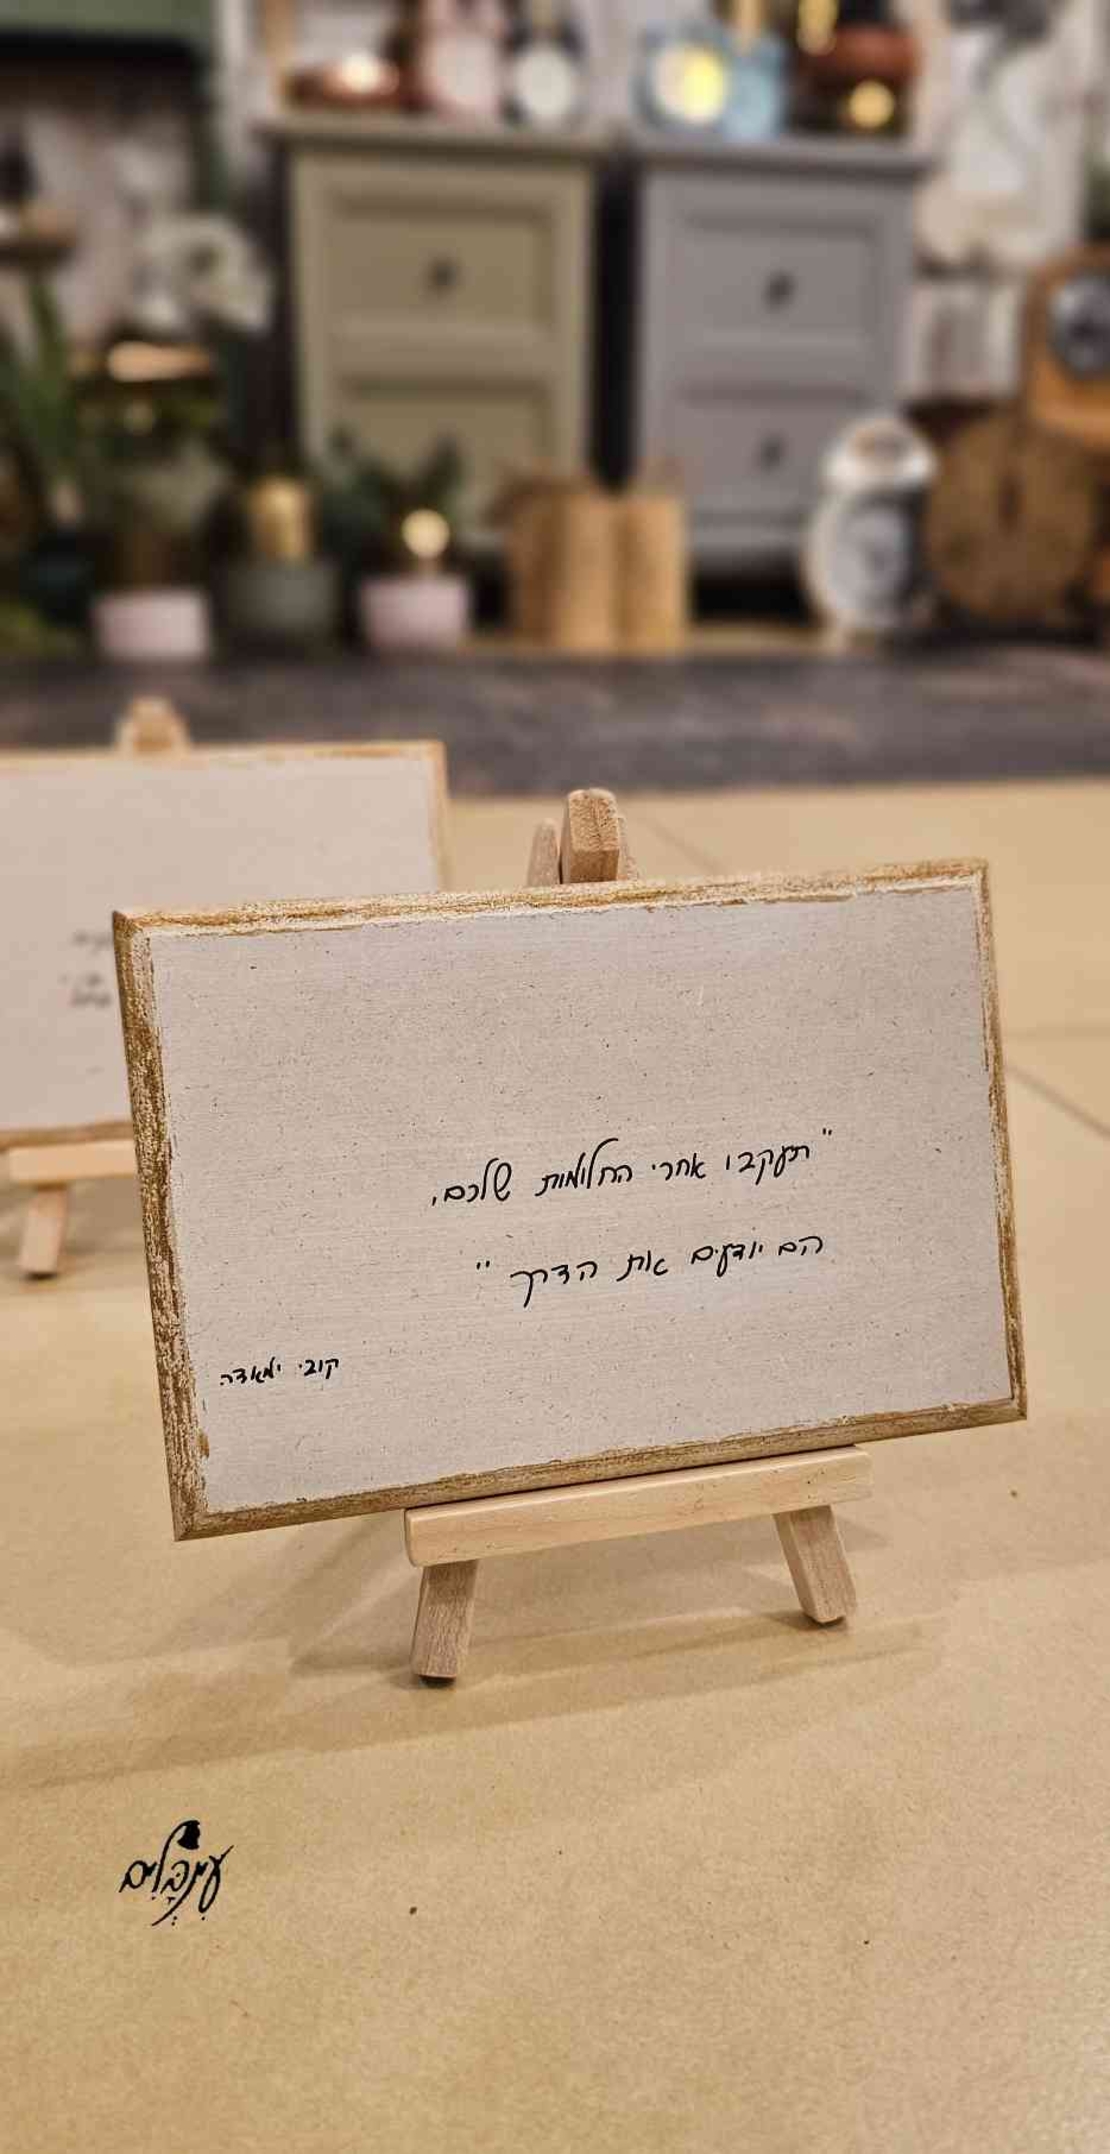 "תעקבו אחרי החלומות שלכם,
הם יודעים את הדרך"
קובי ימאדה